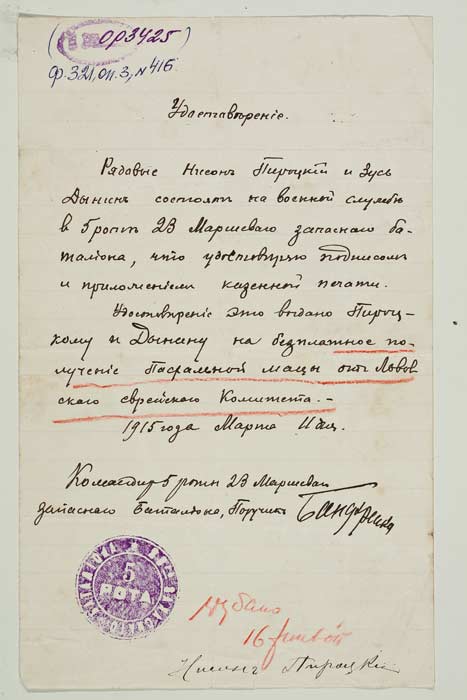 (ОР3425)
Ф.321, оп.3, №416
Удостовѣреніе.
Рядовые Нисонъ Пироцкій и Зусь
Дынинъ состоятъ на военной службѣ
в 5 ротѣ 23 Маршеваго запаснаго ба-
таліона, что удостовѣряю подписом
и приложеніем казенной печати.
Удостовѣреніе это выдано Пироц-
кому и Дынину на безплатное по-
лученіе Пасхальной мацы отъ Львов
скаго еврейскаго Комитета. -
1915 года Марта
Командир 5 роты 23 Маршеваго
запаснаго Баталіона, Поручикъ
5
РОТА
16
Нисонъ Пироцкій